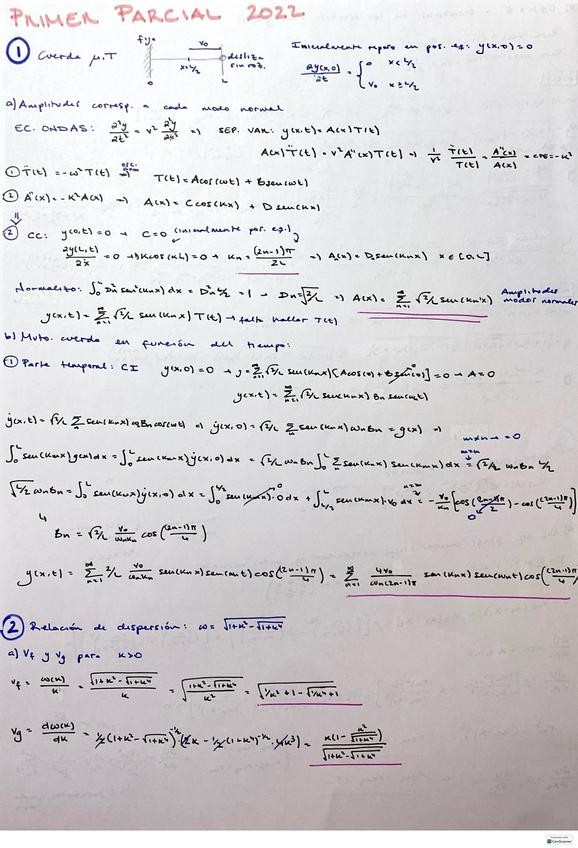 PRIMER PARCIAL 2022
① Cuerda μ,T
fijo
v₀
x=L/2
desliza
sin roz.
0
L
Inicialmente reposo en pos. eq: y(x,0)=0
∂y(x,0)/∂t = { 0 x<L/2
v₀ x≥L/2
a) Amplitudes corresp. a cada modo normal
EC. ONDAS: ∂²y/∂t² = v² ∂²y/∂x² ⇒ SEP. VAR: y(x,t)=A(x)T(t)
A(x)T̈(t)=v²A''(x)T(t) ⇒ 1/v² T̈(t)/T(t) = A''(x)/A(x) = cte=-k²
① T̈(t)=-ω²T(t) ⇒ T(t)=Acos(ωt)+Bsen(ωt)
② A''(x)=-k²A(x) ⇒ A(x)=Ccos(kx)+Dsen(kx)
⇓
② CC: y(0,t)=0 → C=0 (inicialmente pos. eq.!)
∂y(L,t)/∂x =0 → Dkcos(kL)=0 → kn=(2n-1)π/2L ⇒ An(x)=Dnsen(knx) x∈[0,L]
Normalizo: ∫₀ᴸ Dn²sen²(knx)dx = Dn² L/2 =1 → Dn=√2/L ⇒ A(x)= Σ_{n=1}^∞ √2/L sen(knx) Amplitudes
modos normales
y(x,t)= Σ_{n=1}^∞ √2/L sen(knx)T(t) → falta hallar T(t)
b) Mvto. cuerda en función del tiempo:
① Parte temporal: CI y(x,0)=0 → y=Σ_{n=1}^∞ √2/L sen(knx)[Acos(0)+Bsen(0)]=0 → A=0
y(x,t)=Σ_{n=1}^∞ √2/L sen(knx)Bn sen(ωnt)
ẏ(x,t)=√2/L Σ_n sen(knx)ωnBncos(ωt) ⇒ ẏ(x,0)=√2/L Σ_n sen(knx)ωnBn=g(x) ⇒
m≠n → =0
m=n
∫₀ᴸ sen(kmx)g(x)dx=∫₀ᴸ sen(kmx)ẏ(x,0)dx=√2/L ωnBn∫₀ᴸ Σ sen(knx)sen(kmx)dx = √2/L ωnBn L/2
√L/2 ωnBn=∫₀ᴸ sen(kmx)ẏ(x,0)dx=∫₀^{L/2} sen(kmx)·0dx + ∫_{L/2}^L sen(kmx)·v₀dx = -v₀/kn [cos((2n-1)π/2)-cos((2n-1)π/4)]
n=m
0
Bn=√2/L v₀/ωnkn cos((2n-1)π/4)
y(x,t)=Σ_{n=1}^∞ 2/L v₀/ωnkn sen(knx)sen(ωnt)cos((2n-1)π/4) = Σ_{n=1}^∞ 4v₀/ωn(2n-1)π sen(knx)sen(ωnt)cos((2n-1)π/4)
② Relación de dispersión: ω=√(1+k²-√(1+k⁴))
a) vf y vg para k>0
vf=ω(k)/k = √(1+k²-√(1+k⁴))/k = √((1+k²-√(1+k⁴))/k²) = √(1/k²+1-√(1/k⁴+1))
vg=dω(k)/dk = 1/2(1+k²-√(1+k⁴))^{-1/2}·(2k-1/2(1+k⁴)^{-1/2}·4k³)= k(1-k²/√(1+k⁴))/√(1+k²-√(1+k⁴))
CamScanner